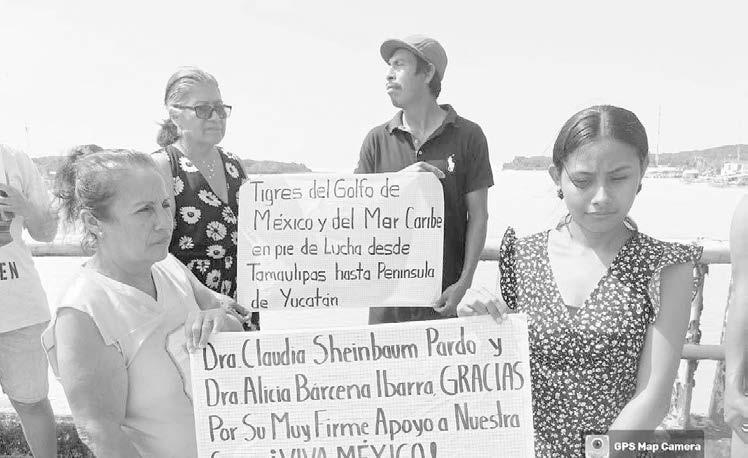 Tigres del Golfo de
México y del Mar Caribe
en pie de Lucha desde
Tamaulipas hasta Península
de Yucatán
Dra. Claudia Sheinbaum Pardo y
Dra. Alicia Bárcena Ibarra, GRACIAS
Por Su Muy Firme Apoyo a Nuestra
¡VIVA MÉXICO!
EN
GPS Map Camera